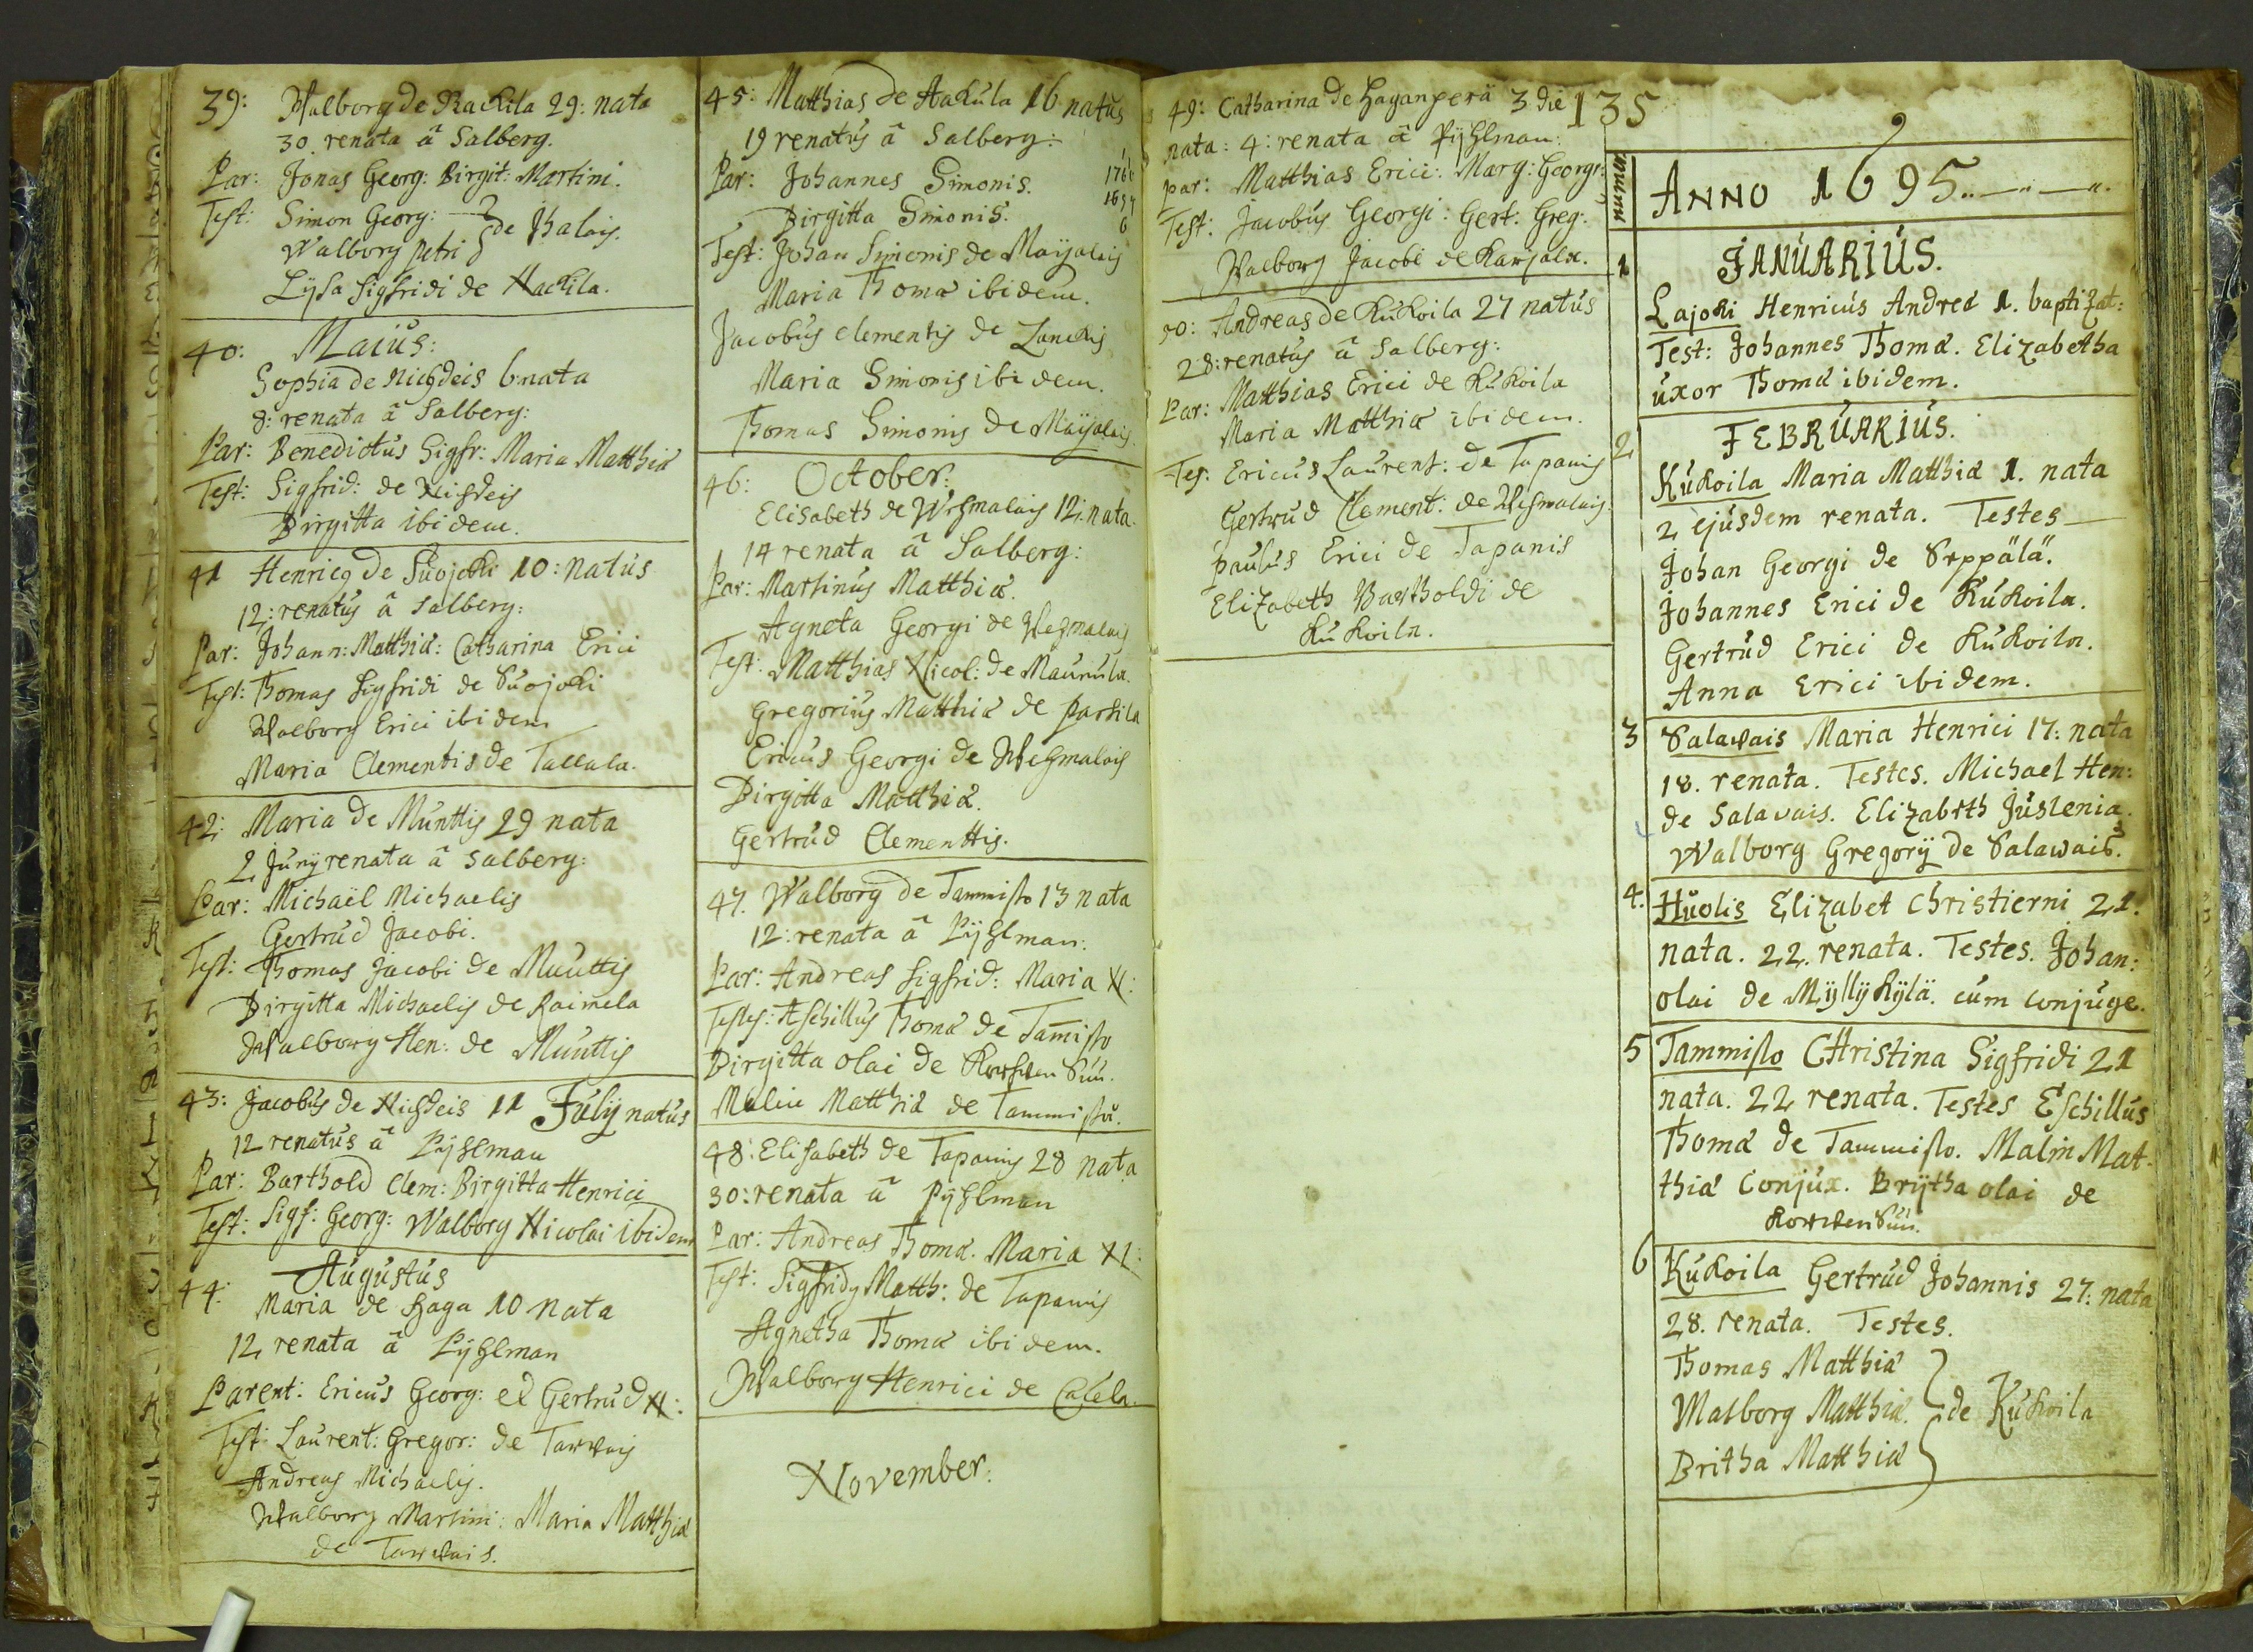 39: Walborg de Rackila 29: nata
30. renata â Salberg.
Par: Jonas Georg: Birgit: Martini.
Test: Simon Georg:
Walborg Petri } de
Lysa Sigfridi de Hackila.
40: Maiùs:
Sophia de Nichdeis 6: nata
8: renata â Salberg:
Par: Benedictùs Sigfr: Maria Matthiæ
Test: Sigfrid: de Nichdeis
Birgitta ibidem.
41 Henricq de Sùojoki 10: natùs
12: renatùs â Salberg:
Par: Johann: Matthiæ: Catharina Erici
Test: Thomas Sigfridi de Sùojoki
Walborg Erici ibidem
Maria Clementis de Tallala.
42: Maria de Mùnttis 29 nata
2 Jùnÿ renata â Salberg:
Par: Michaël Michaelis
Gertrùd Jacobi.
Test: Thomas Jacobi de Mùùttis
Birgitta Michaelis de Raimela
Walborg Hen: de Mùùttis
43: Jacobùs de Nichdeis 11 Jùlij natùs
12 renatùs â Pijhlman
Par: Barthold Clem: Birgitta Henrici
Test: Sigf: Georg: Walborg Nicolai ibidem
Aùgùstùs
44: Maria de Haga 10 nata
12 renata â Pijhlman
Parent: Ericùs Georg: et Gertrùd N:
Test: Laùrent: Gregor: de Tarvais
Andreas Michaelis.
Walborg Martini: Maria Matthiæ
de Tarvais.
45: Matthias de Hakùla 16 natùs
19 renatùs â Salberg:
Par: Johannes Simonis.
Birgitta Simonis.
Test: Johan Simonis de Maijalais
Maria Thomæ ibidem.
Jacobùs Clementis de Lanckis
Maria Simonis ibidem.
Thomas Simonis de Maijalais.
46: October:
Elisabeth de Wehmalais 12: nata.
14 renata â Salberg:
Par: Martinùs Matthiæ.
Agneta Georgi de Wehmalais
Test: Matthias Nicol: de Maùnùla.
Gregoriùs Matthiæ de Parkila
Ericùs Georgi de Wehmalais
Birgitta Matthiæ.
Gertrùd Clementtis.
47. Walborg de Tammisto 13 nata
12: renata â Pijhlman:
Par: Andreas Sigfrid: Maria N:
Testes: Aschillùs Thomæ de Tamisto
Birgitta Olai de Korfven Sùù.
Malin Matthiæ de Tammisto.
48: Elisabeth de Tapanis 28 nata
30: renata â Pijhlman
Par: Andreas Thomæ. Maria N:
Test: Sigfridq Matth: de Tapanis
Agnetha Thomæ ibidem.
Walborg Henrici de
November.
135
49: Catharina de Haganperä 3 die
nata: 4: renata â Pijhlman:
Par: Matthias Erici: Marg: Georgi:
Test: Jacobùs Georgi: Gert: Greg:
Walborg Jacobi de Karjala.
50: Andreas de Kùkoila 27 natùs
28: renatùs â Salberg:
Par: Matthias Erici de Kùkoila
Maria Matthiæ ibidem.
Tes: Ericùs Laùrent: de Tapanis
Gertrùd Clement: de Wehmalais:
Paùlùs Erici de Tapanis
Elizabeth Bartholdi de
Kùkoila.
ANNO 1695
1 JANÙARIÙS.
Lajoki Henricùs Andreæ 1. baptizat:
Test: Johannes Thomæ. Elizabetha
ùxor Thomæ ibidem.
2 FEBRÙARIÙS.
Kùkoila Maria Matthiæ 1. nata
2 ejùsdem renata. Testes
Johan Georgi de Seppälä.
Johannes Erici de Kùkoila.
Gertrùd Erici de Kùkoila.
Anna Erici ibidem.
3 Salavais Maria Henrici 17: nata
18. renata. Testes. Michael Hen:
de Salavais. Elizabeth Jùslenia.
Walborg Gregorÿ de Salawais.
4. Hùolis Elizabet Christierni 21.
nata. 22. renata. Testes. Johan:
olai de Mÿllÿkÿlä. cùm conjùge.
5 Tammisto CHristina Sigfridi 21
nata. 22 renata. Testes Eschillùs
Thomæ de Tammisto. Malin Mat-
thiæ Conjùx. Brÿtha olai de
Korfven Sùù.
6 Kùkoila Gertrùd Johannis 27: nata
28. renata. Testes.
Thomas Matthiæ
Walborg Matthiæ. } de Kùkoila
Britha Matthiæ